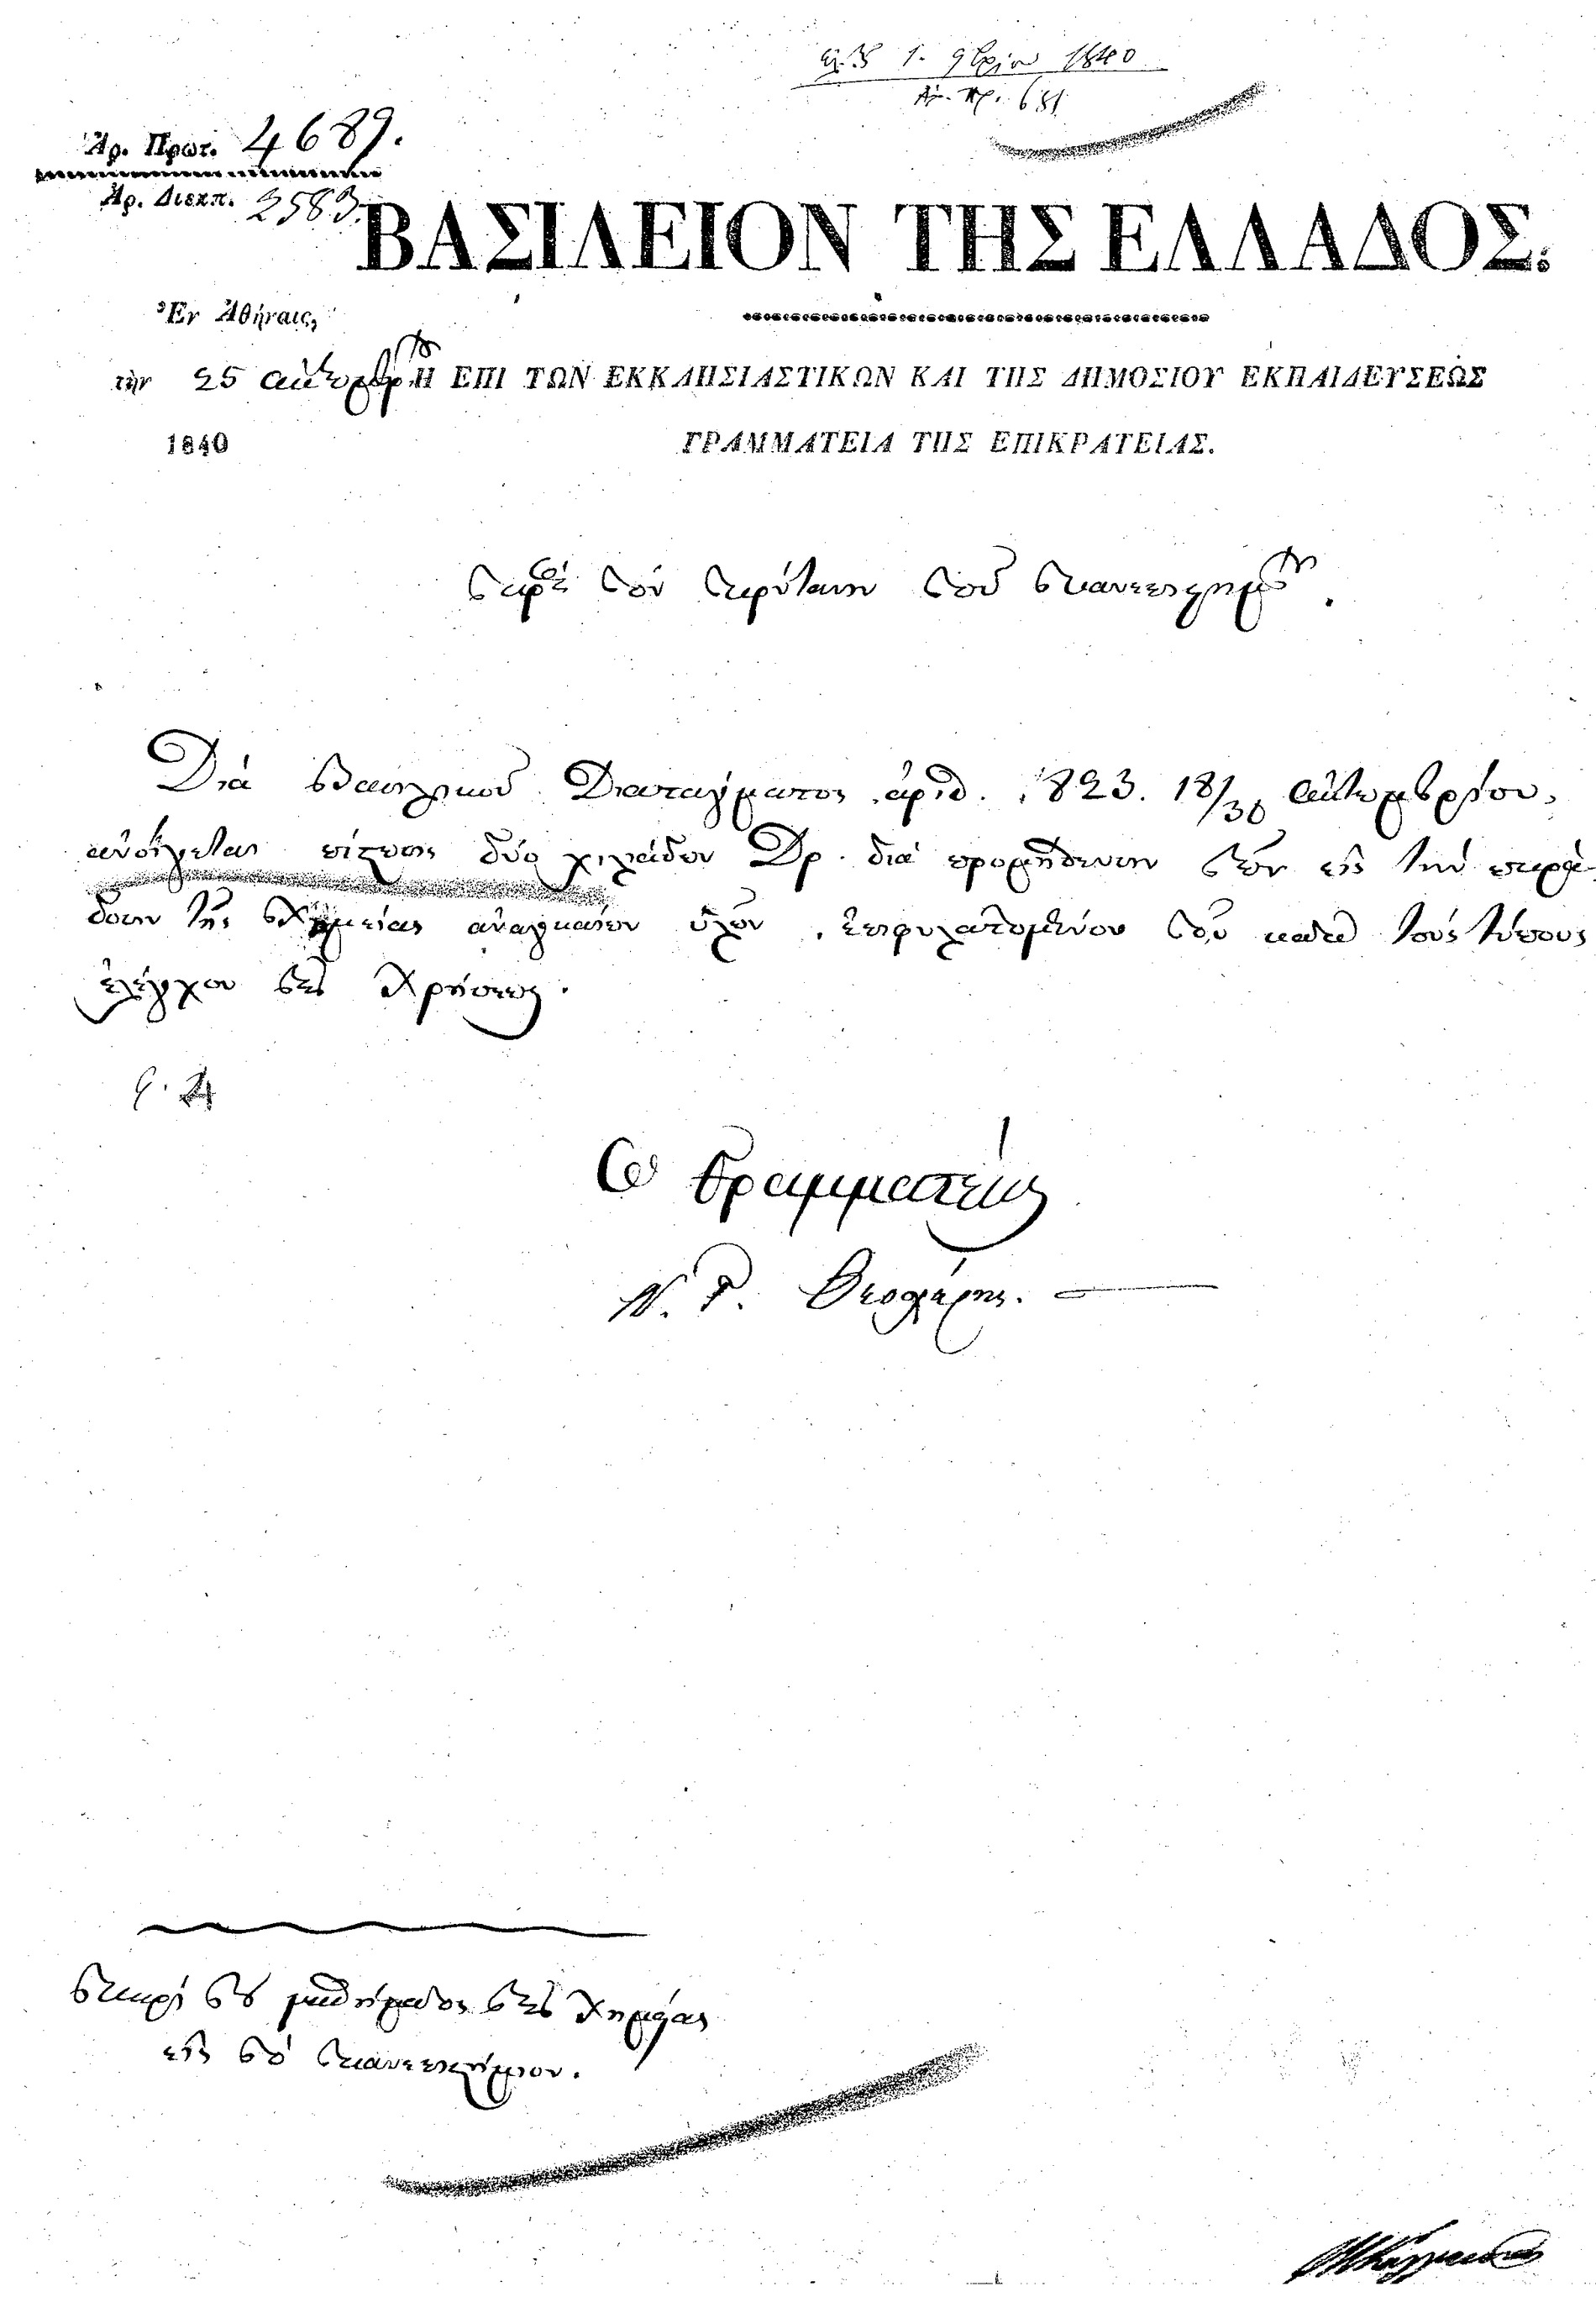 1. 9βρίου 1840
Αρ. Πρ. 681
Ἀρ. Πρωτ. 4689.
Ἀρ. Διεκπ. 2583.
ΒΑΣΙΛΕΙΟΝ ΤΗΣ ΕΛΛΑΔΟΣ.
Ἐν Ἀθήναις,
τὴν 25 Ὀκτωβρ.
Η ΕΠΙ ΤΩΝ ΕΚΚΛΗΣΙΑΣΤΙΚΩΝ ΚΑΙ ΤΗΣ ΔΗΜΟΣΙΟΥ ΕΚΠΑΙΔΕΥΣΕΩΣ
1840
ΓΡΑΜΜΑΤΕΙΑ ΤΗΣ ΕΠΙΚΡΑΤΕΙΑΣ.
Πρὸς τὸν Πρύτανιν τοῦ Πανεπιστημίου.
Διὰ Βασιλικοῦ Διατάγματος ἀριθ. 1823. 18/30 Ὀκτωβρίου,
ἀνοίγεται πίστωσις δύο χιλιάδων Δρ. διὰ προμήθευσιν τῶν εἰς τὴν παρά-
δοσιν τῆς Χημείας ἀναγκαίων ὑλῶν, ἐπιφυλαττομένου τοῦ κατὰ τοὺς τύπους
ἐλέγχου τῆς Χρήσεως.
Ὁ Γραμματεὺς
Ν. Γ. Θεοχάρης.
Περὶ τοῦ μαθήματος τῆς Χημείας
εἰς τὸ Πανεπιστήμιον.